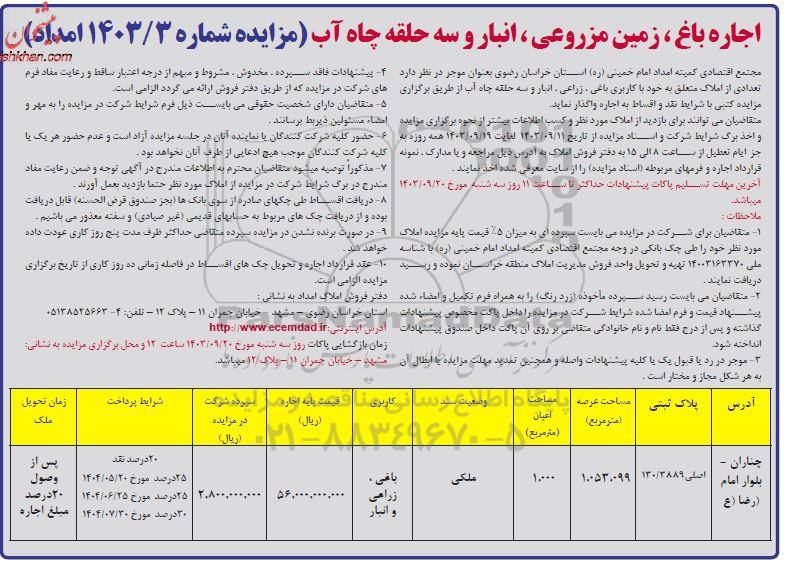 اجاره باغ ، زمین مزروعی ، انبار و سه حلقه چاه آب (مزایده شماره ۱۴۰۳/۳ امداد)
مجتمع اقتصادی کمیته امداد امام خمینی (ره) استان خراسان رضوی بعنوان موجر در نظر دارد
تعدادی از املاک متعلق به خود با کاربری باغی ، زراعی ، انبار و سه حلقه چاه آب از طریق برگزاری
مزایده کتبی با شرایط نقد و اقساط به اجاره واگذار نماید.
متقاضیان می توانند برای بازدید از املاک مورد نظر و کسب اطلاعات بیشتر از نحوه برگزاری مزایده
و اخذ برگ شرایط شرکت و اسناد مزایده از تاریخ ۱۴۰۳/۰۹/۱۱ لغایت ۱۴۰۳/۰۹/۱۹ همه روزه به
جز ایام تعطیل از ساعت ۸ الی ۱۵ به دفتر فروش املاک به آدرس ذیل مراجعه و یا مدارک ، نمونه
قرارداد اجاره و فرمهای مربوطه (اسناد مزایده) را از سایت معرفی شده اخذ نمایند .
آخرین مهلت تسلیم پاکات پیشنهادات حداکثر تا ساعت ۱۱ روز سه شنبه مورخ ۱۴۰۳/۰۹/۲۰
میباشد.
ملاحظات :
۱- متقاضیان برای شرکت در مزایده می بایست سپرده ای به میزان ۵٪ قیمت پایه مزایده املاک
مورد نظر خود را طی چک بانکی در وجه مجتمع اقتصادی کمیته امداد امام خمینی (ره) با شناسه
ملی ۱۴۰۰۳۱۶۳۳۷۰ تهیه و تحویل واحد فروش مدیریت املاک منطقه خراسان نموده و رسید
دریافت نمایند .
۲- متقاضیان می بایست رسید سپرده مأخوذه (زرد رنگ) را به همراه فرم تکمیل و امضاء شده
پیشنهاد قیمت و فرم امضا شده شرایط شرکت در مزایده را داخل پاکت مخصوص پیشنهادات
گذاشته و پس از درج فقط نام و نام خانوادگی متقاضی بر روی آن پاکت داخل صندوق پیشنهادات
انداخته شود.
۳- موجر در رد یا قبول یک یا کلیه پیشنهادات واصله و همچنین تمدید مهلت مزایده یا ابطال آن
به هر شکل مجاز و مختار است .
۴- پیشنهادات فاقد سپرده ، مخدوش ، مشروط و مبهم از درجه اعتبار ساقط و رعایت مفاد فرم
های شرکت در مزایده که از طریق دفتر فروش ارائه می گردد الزامی است.
۵- متقاضیان دارای شخصیت حقوقی می بایست ذیل فرم شرایط شرکت در مزایده را به مهر و
امضاء مسئولین ذیربط برسانند .
۶- حضور کلیه شرکت کنندگان یا نماینده آنان در جلسه مزایده آزاد است و عدم حضور هر یک یا
کلیه شرکت کنندگان موجب هیچ ادعایی از طرف آنان نخواهد بود .
۷- مذکوراً توصیه میشود متقاضیان محترم به اطلاعات مندرج در آگهی توجه و ضمن رعایت مفاد
مندرج در برگ شرایط شرکت در مزایده از املاک مورد نظر حتما بازدید بعمل آورند .
۸- دریافت اقساط طی چکهای صادره از سوی بانک ها (بجز صندوق قرض الحسنه) قابل دریافت
بوده و از دریافت چک های مربوط به حسابهای قدیمی (غیر صیادی) و سفته معذور می باشیم .
۹- در صورت برنده نشدن در مزایده سپرده متقاضی حداکثر ظرف مدت پنج روز کاری عودت داده
خواهد شد .
۱۰- عقد قرارداد اجاره و تحویل چک های اقساط در فاصله زمانی ده روز کاری از تاریخ برگزاری
مزایده الزامی است.
دفتر فروش املاک امداد به نشانی :
استان خراسان رضوی – مشهد - خیابان چمران ۱۱ – پلاک ۱۲ – تلفن: ۴- ۰۵۱۳۸۵۲۵۶۶۳
آدرس اینترنتی: http://www.ecemdad.ir
زمان بازگشایی پاکات روز سه شنبه مورخ ۱۴۰۳/۰۹/۲۰ ساعت ۱۲ و محل برگزاری مزایده به نشانی:
مشهد – خیابان چمران ۱۱ – پلاک ۱۲ میباشد.
آدرس | پلاک ثبتی | مساحت عرصه (مترمربع) | مساحت اعیان (مترمربع) | وضعیت سند | کاربری | قیمت پایه اجاره (ریال) | سپرده شرکت در مزایده (ریال) | شرایط پرداخت | زمان تحویل ملک
چناران – بلوار امام رضا (ع) | ۱۳۰/۳۸۸۹ اصلی | ۱.۰۵۳.۰۹۹ | ۱.۰۰۰ | ملکی | باغی ، زراعی و انبار | ۵۶.۰۰۰.۰۰۰.۰۰۰ | ۲.۸۰۰.۰۰۰.۰۰۰ | ۲۰درصد نقد ۲۵درصد مورخ ۱۴۰۴/۰۵/۲۰ ۲۵درصد مورخ ۱۴۰۴/۰۶/۲۵ ۳۰درصد مورخ ۱۴۰۴/۰۷/۳۰ | پس از وصول ۲۰درصد مبلغ اجاره
پایگاه اطلاع رسانی مناقصه و مزایده
۰۲۱-۸۸۳۴۹۶۷۰-۵
ParsNamadData